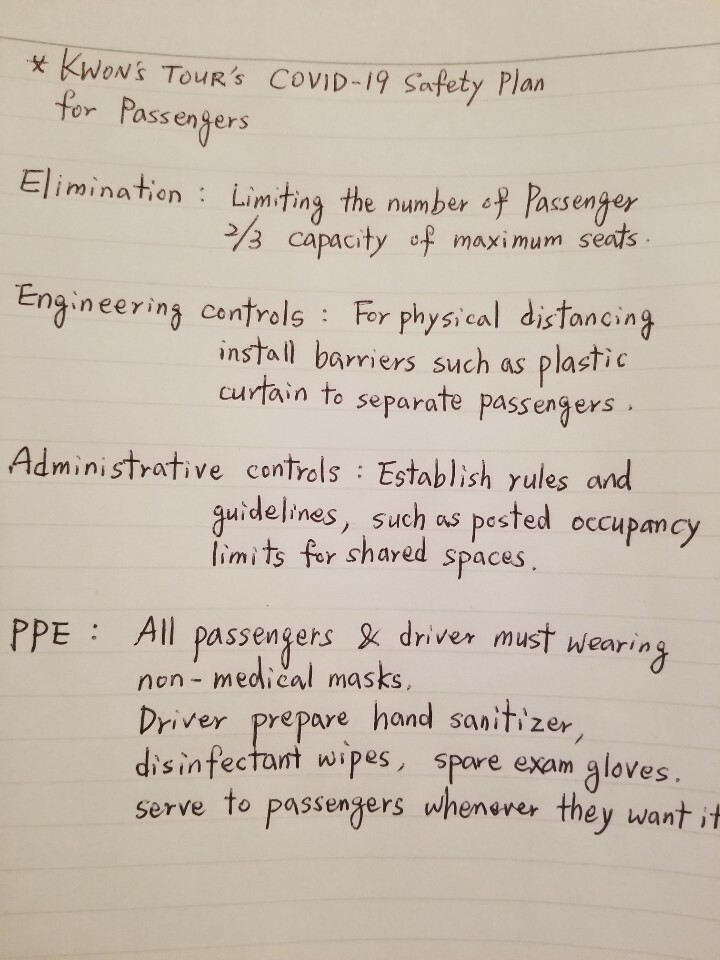 * KWON'S TOUR'S COVID-19 Safety Plan
for Passengers
Elimination : Limiting the number of Passenger
2/3 capacity of maximum seats.
Engineering controls : For physical distancing
install barriers such as plastic
curtain to separate passengers.
Administrative controls : Establish rules and
guidelines, such as posted occupancy
limits for shared spaces.
PPE : All passengers & driver must wearing
non-medical masks.
Driver prepare hand sanitizer,
disinfectant wipes, spare exam gloves.
serve to passengers whenever they want it